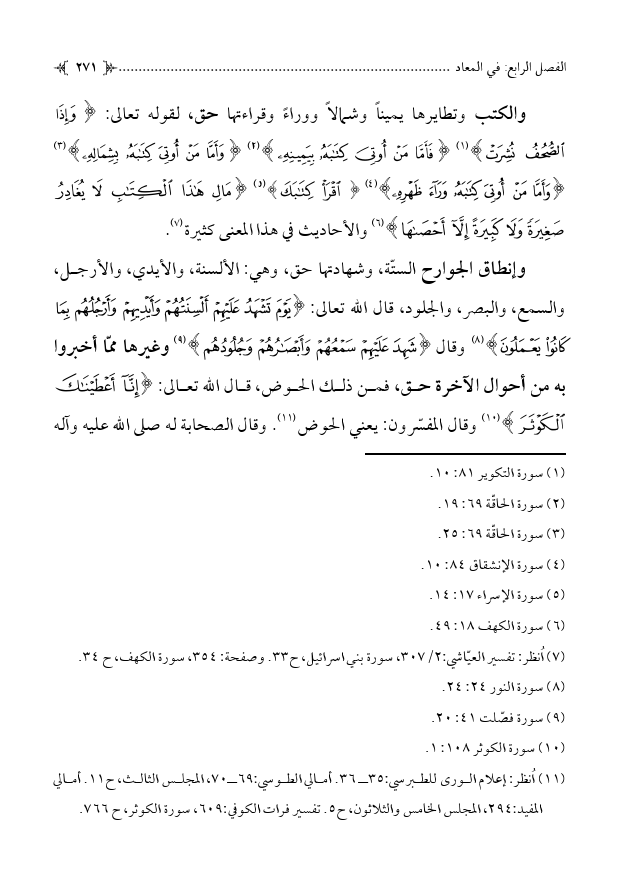 الفصل الرابع: في المعاد ................................................................................ ﴿ ٢٧١ ﴾
والكتب وتطايرها يميناً وشمالاً ووراءً وقراءتها حق، لقوله تعالى: ﴿ وَإِذَا
ٱلصُّحُفُ نُشِرَتْ ﴾(١) ﴿ فَأَمَّا مَنْ أُوتِىَ كِتَـٰبَهُۥ بِيَمِينِهِۦ ﴾(٢) ﴿ وَأَمَّا مَنْ أُوتِىَ كِتَـٰبَهُۥ بِشِمَالِهِۦ ﴾(٣)
﴿ وَأَمَّا مَنْ أُوتِىَ كِتَـٰبَهُۥ وَرَآءَ ظَهْرِهِۦ ﴾(٤) ﴿ ٱقْرَأْ كِتَـٰبَكَ ﴾(٥) ﴿ مَالِ هَـٰذَا ٱلْكِتَـٰبِ لَا يُغَادِرُ
صَغِيرَةً وَلَا كَبِيرَةً إِلَّآ أَحْصَـٰهَا ﴾(٦) والأحاديث في هذا المعنى كثيرة(٧).
وإنطاق الجوارح الستّة، وشهادتها حق، وهي: الألسنة، والأيدي، والأرجـل،
والسمع، والبصر، والجلود، قال الله تعالى: ﴿ يَوْمَ تَشْهَدُ عَلَيْهِمْ أَلْسِنَتُهُمْ وَأَيْدِيهِمْ وَأَرْجُلُهُم بِمَا
كَانُوا۟ يَعْمَلُونَ ﴾(٨) وقال ﴿ شَهِدَ عَلَيْهِمْ سَمْعُهُمْ وَأَبْصَـٰرُهُمْ وَجُلُودُهُم ﴾(٩) وغيرها ممّا أخبروا
به من أحوال الآخرة حـق، فمـن ذلـك الحـوض، قـال الله تعـالى: ﴿ إِنَّآ أَعْطَيْنَـٰكَ
ٱلْكَوْثَرَ ﴾(١٠) وقال المفسّرون: يعني الحوض(١١). وقال الصحابة له صلى الله عليه وآله
(١) سورة التكوير ٨١: ١٠.
(٢) سورة الحاقّة ٦٩: ١٩.
(٣) سورة الحاقّة ٦٩: ٢٥.
(٤) سورة الإنشقاق ٨٤: ١٠.
(٥) سورة الإسراء ١٧: ١٤.
(٦) سورة الكهف ١٨: ٤٩.
(٧) اُنظر: تفسير العيّاشي:٢/ ٣٠٧، سورة بني اسرائيل، ح٣٣. وصفحة: ٣٥٤، سورة الكهف، ح ٣٤.
(٨) سورة النور ٢٤: ٢٤.
(٩) سورة فصّلت ٤١: ٢٠.
(١٠) سورة الكوثر ١٠٨: ١.
(١١) اُنظر: إعلام الـورى للطـبرسي:٣٥ــ٣٦. أمـالي الطـوسي:٦٩ــ٧٠، المجلـس الثالـث، ح١١. أمـالي
المفيد:٢٩٤، المجلس الخامس والثلاثون، ح٥. تفسير فرات الكوفي:٦٠٩، سورة الكوثر، ح ٧٦٦.